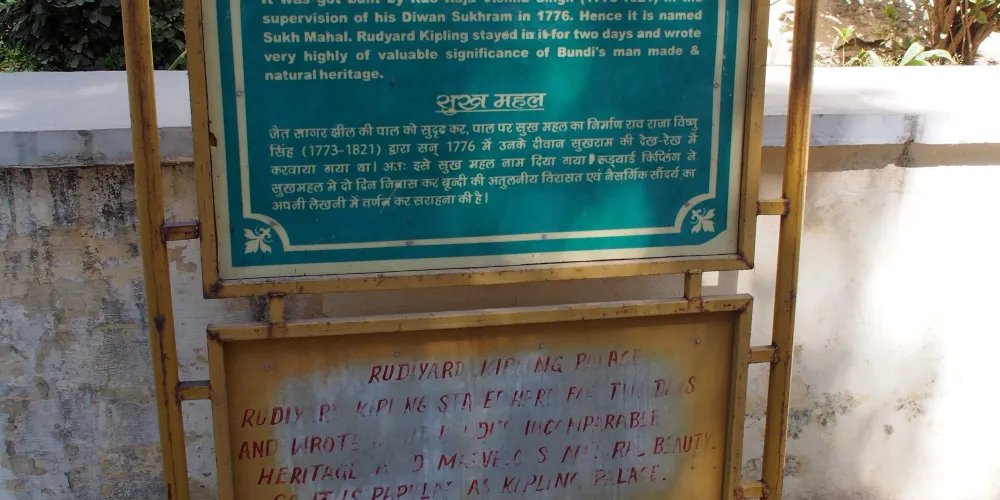 It was got built by Rao Raja Vishnu Singh (1773-1821) in the
supervision of his Diwan Sukhram in 1776. Hence it is named
Sukh Mahal. Rudyard Kipling stayed in it for two days and wrote
very highly of valuable significance of Bundi's man made &
natural heritage.
सुख महल
जैत सागर झील की पाल को सुदृढ कर, पाल पर सुख महल का निर्माण राव राजा विष्णु
सिंह (1773-1821) द्वारा सन् 1776 में उनके दीवान सुखराम की देख-रेख में
करवाया गया था। अतः इसे सुख महल नाम दिया गया। रूडयार्ड किप्लिंग ने
सुखमहल मे दो दिन निवास कर बून्दी की अतुलनीय विरासत एवं नैसर्गिक सौंदर्य का
अपनी लेखनी में वर्णन कर सराहना की है।
RUDIYARD KIPLING PALACE
RUDIYARD KIPLING STAYED HERE FOR DAYS
AND WROTE INCOMPARABLE
HERITAGE AND MARVELOUS NATURAL BEAUTY.
SO IT IS POPULAR AS KIPLING PALACE.